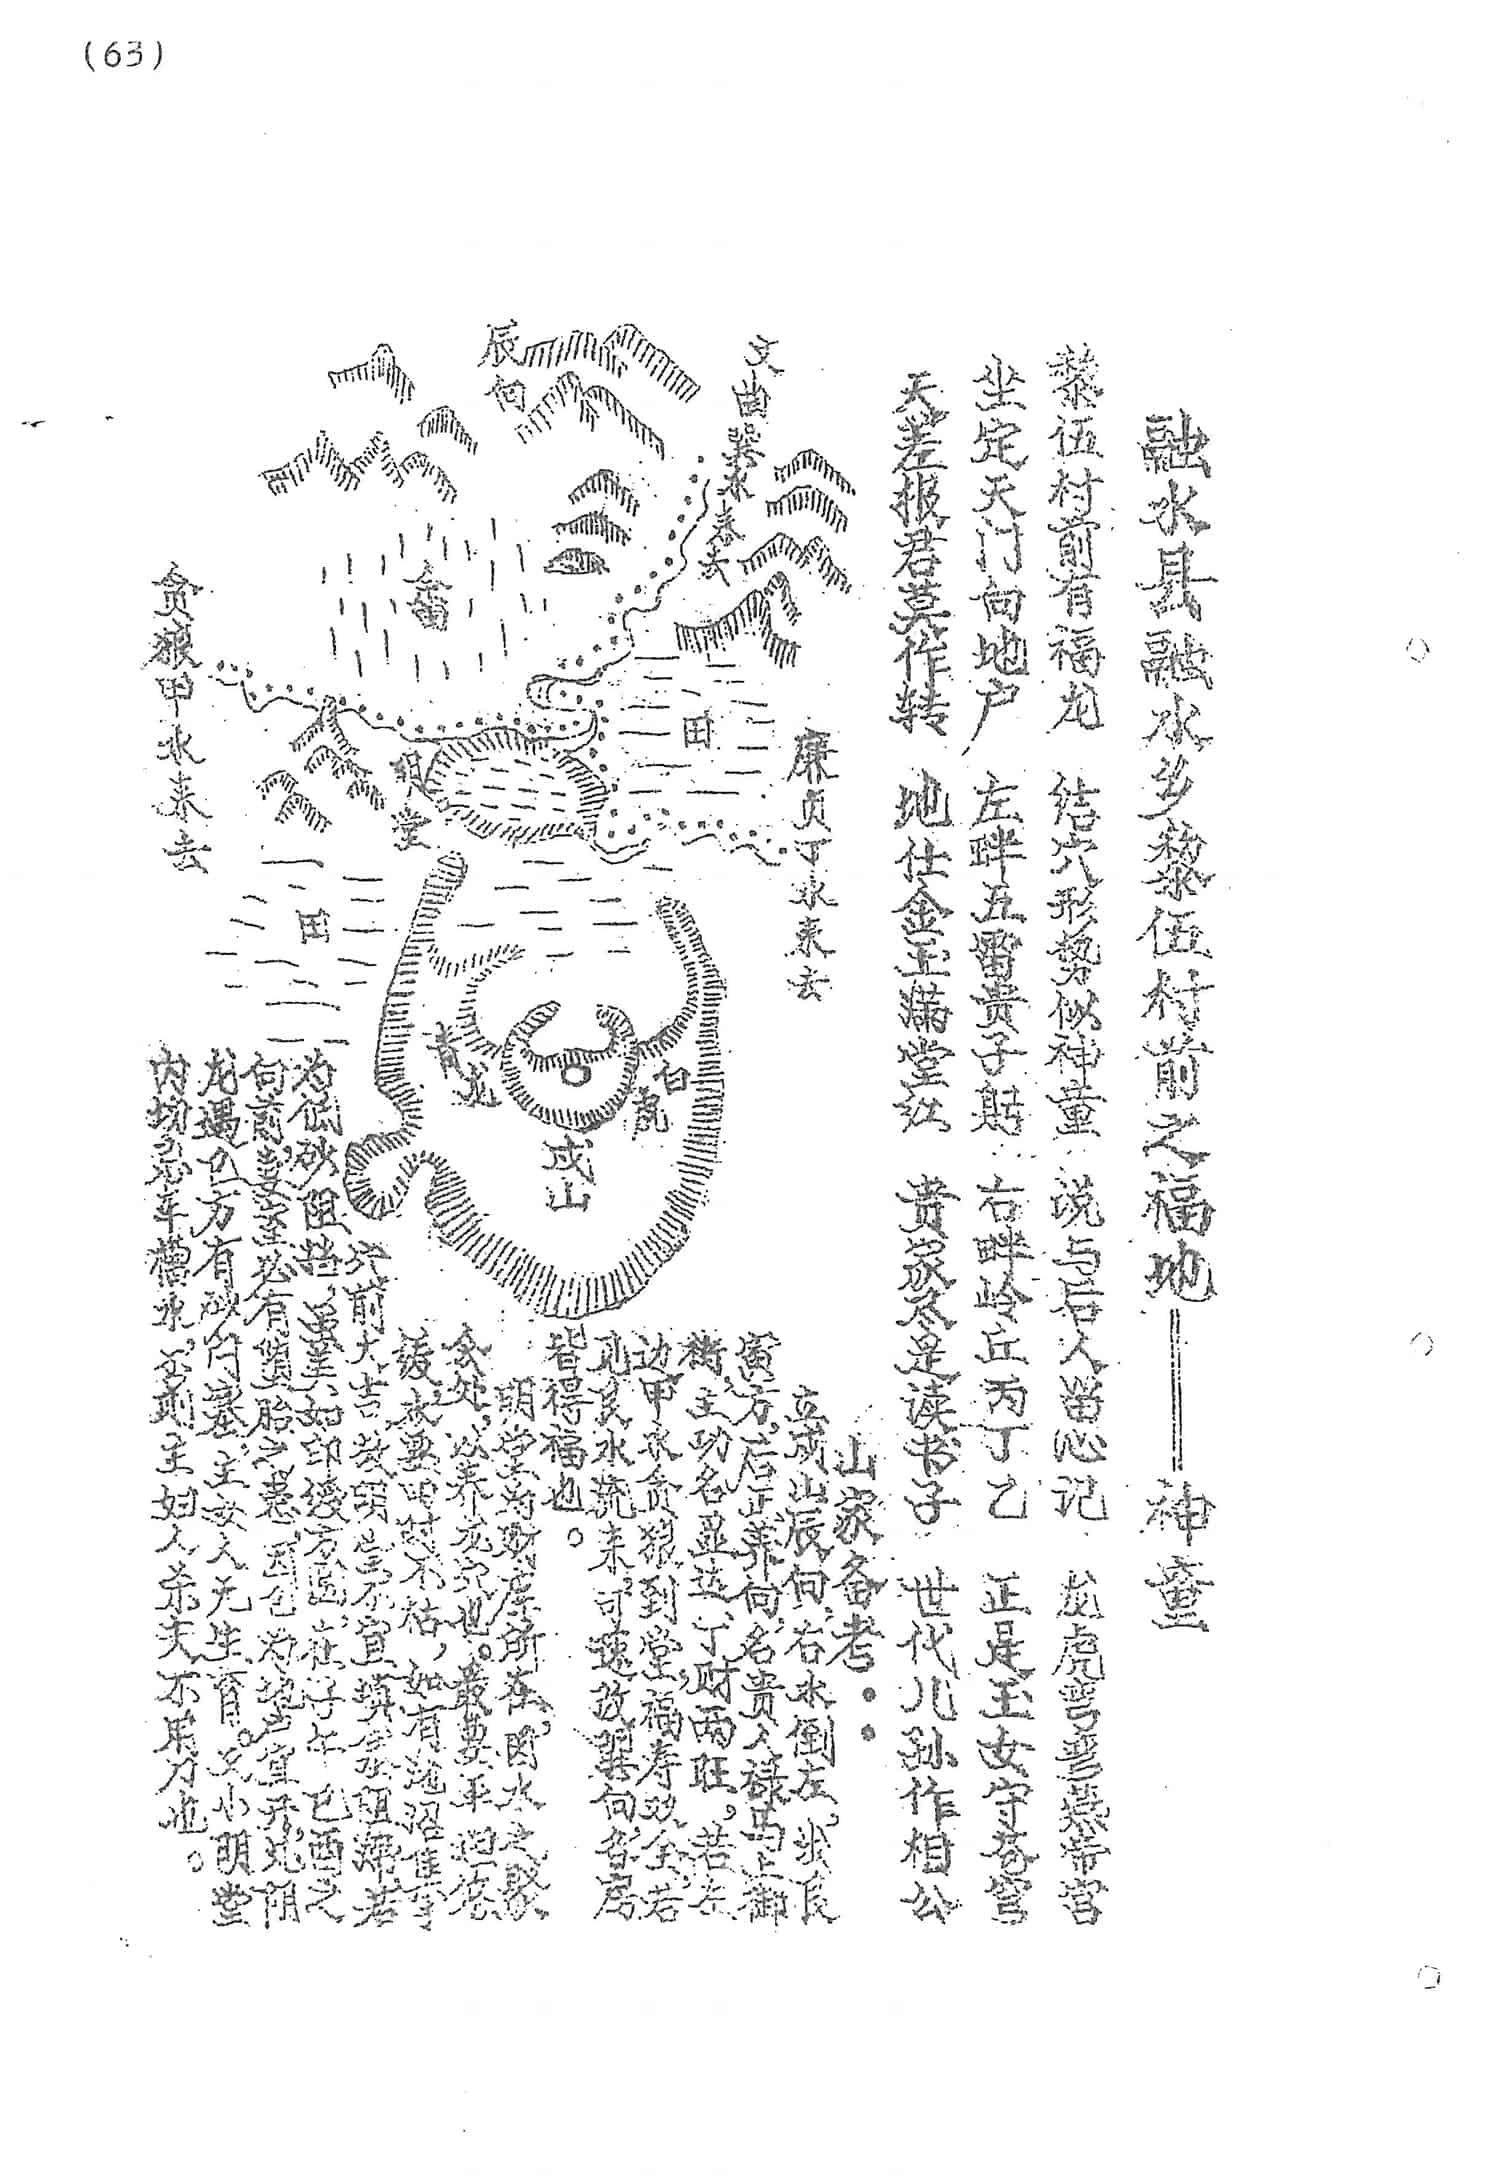 (63)
融水县融水乡黎伍村前之福地——神童
黎伍村前有福龙 结穴形势似神童 说与后人留心记 龙虎弯弯燕帝宫
坐定天门向地户 左畔五雷贵子 右畔岭丘丙丁乙 正是玉女守苍穹
天差报君莫作转 地仕金玉满堂江 贵家尽是读书子 世代儿孙作相公
山家备考：
立戌山辰向，右水倒左，出艮
寅方，启正养向，名贵人禄马上御
街，主功名显达，丁财两旺，若左
边甲水贪狼到堂，福寿双全，若
见艮水流来，可速改巽向，各房
皆得福也。
明堂为财库所在，因水之聚
会处，以养龙穴也。最要平
缓，水要四时不枯，如有池沼
穴前大吉，故明堂不宜填
为低砂阻挡，在子午巳酉之
向前，必有堕胎之患，
龙遇 方有砂 塞，主女人无生育。又小明堂
内切忌 水，否则主妇人杀夫不用刀也。
辰向
文曲巽水来去
贪狼甲水来去
廉贞丁水来去
田
明堂
田
青龙
白虎
戌山